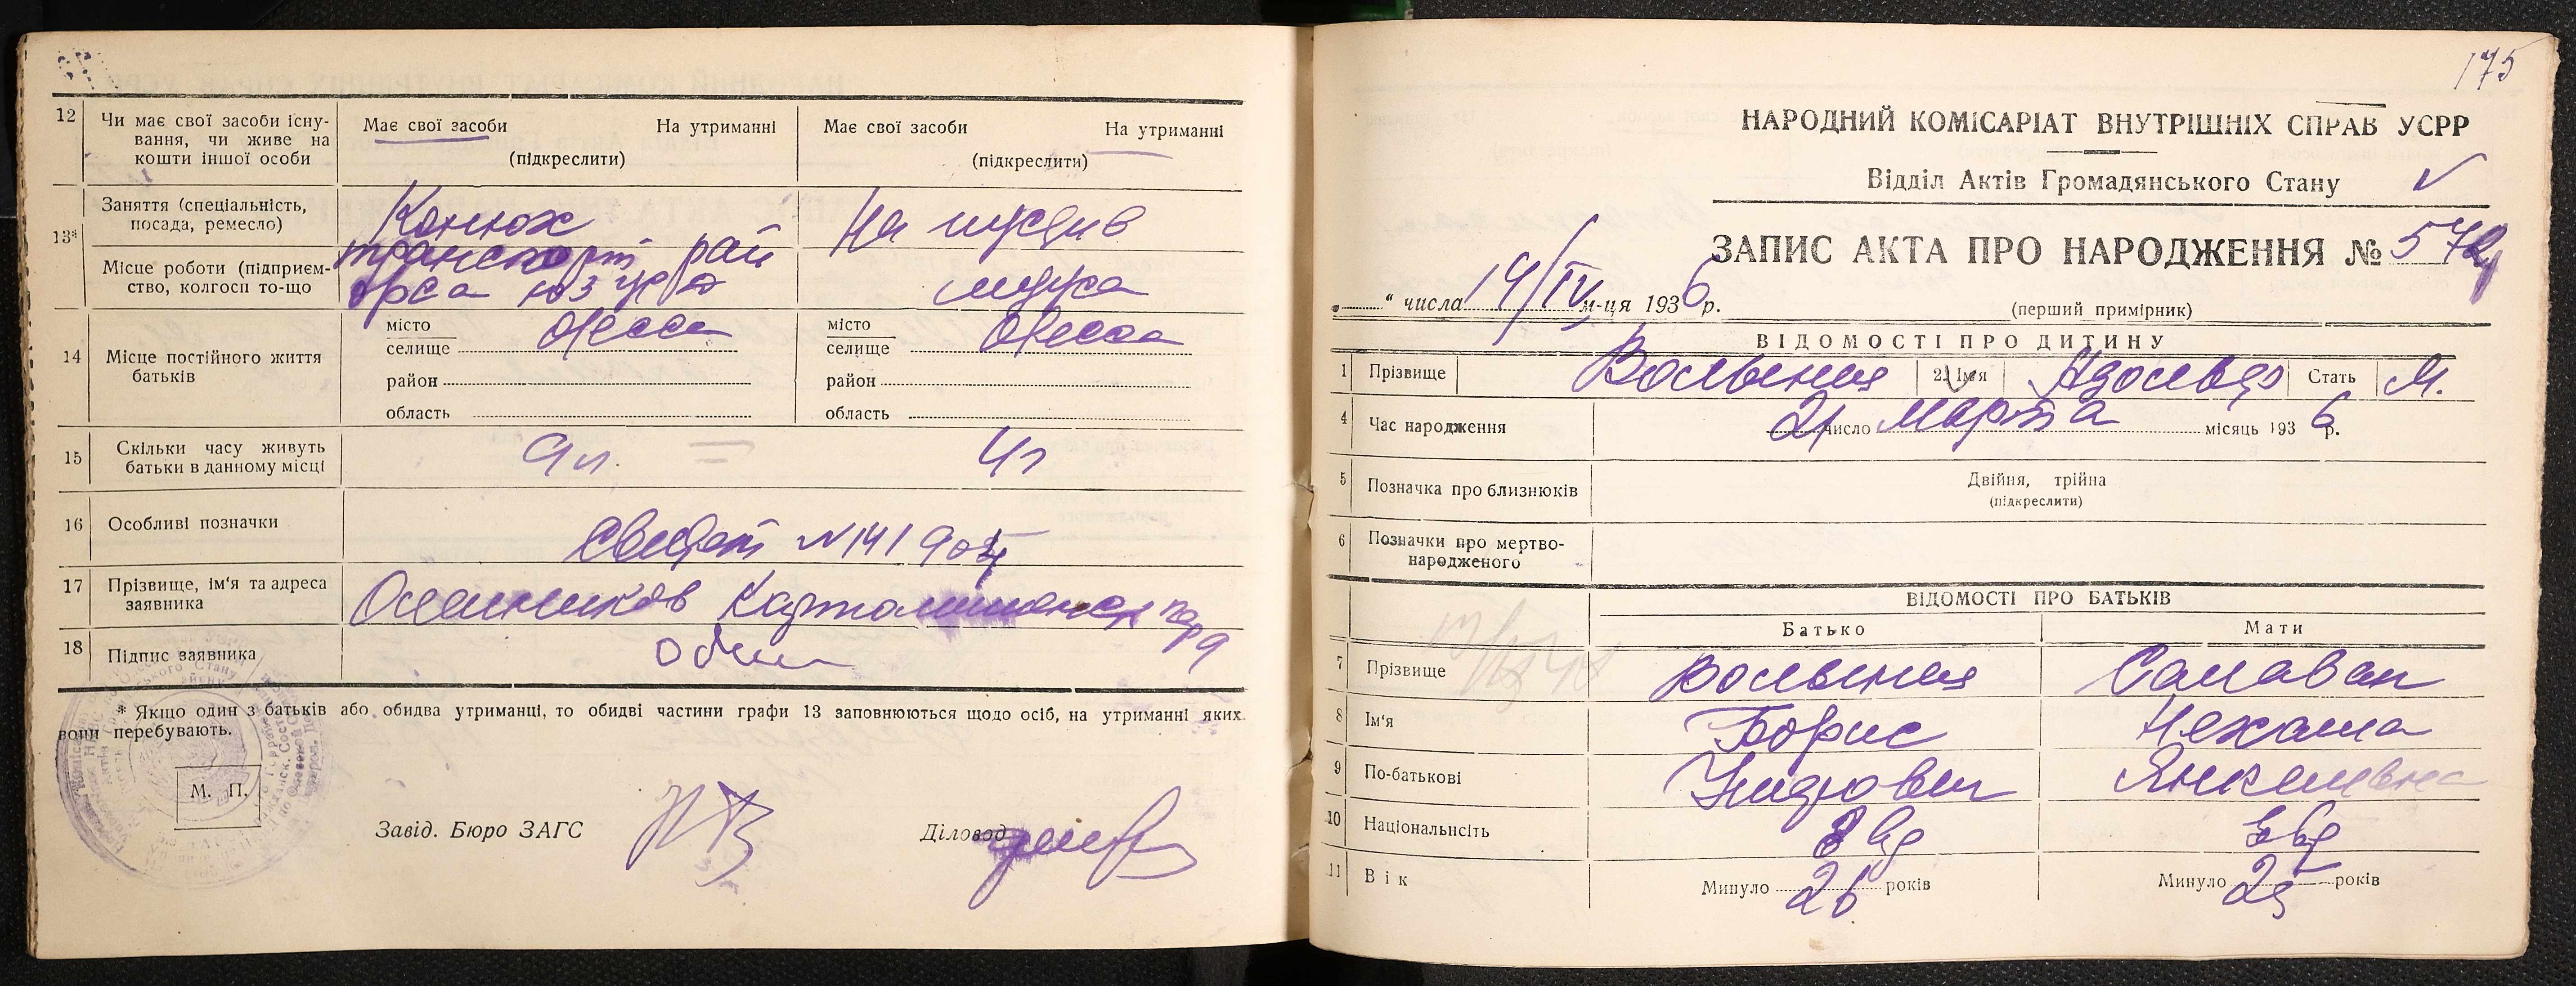 12 Чи має свої засоби існу-
вання, чи живе на
кошти іншої особи
Має свої засоби На утриманні
(підкреслити)
Має свої засоби На утриманні
(підкреслити)
13* Заняття (спеціальність,
посада, ремесло)
Конюх
На иждив
Місце роботи (підприєм-
ство, колгосп то-що
транспорт рай
мужа
14 Місце постійного життя
батьків
місто Одесса
селище
район
область
місто Одесса
селище
район
область
15 Скільки часу живуть
батьки в данному місці
9 л. 4 г
16 Особливі позначки
Свидет №141904
17 Прізвище, ім'я та адреса
заявника
18 Підпис заявника
* Якщо один з батьків або обидва утриманці, то обидві частини графи 13 заповнюються щодо осіб, на утриманні яких
вони перебувають.
М. П.
Завід. Бюро ЗАГС
Діловод
175
НАРОДНИЙ КОМІСАРІАТ ВНУТРІШНІХ СПРАВ УСРР
Відділ Актів Громадянського Стану
ЗАПИС АКТА ПРО НАРОДЖЕННЯ № 572
„ “ числа 14/IV м-ця 1936 р.
(перший примірник)
ВІДОМОСТІ ПРО ДИТИНУ
1 Прізвище 2 Ім'я Адольф Стать М.
4 Час народження 21 число марта місяць 1936 р.
5 Позначка про близнюків
Двійня, трійна
(підкреслити)
6 Позначки про мертво-
народженого
ВІДОМОСТІ ПРО БАТЬКІВ
Батько Мати
7 Прізвище
8 Ім'я Борис Нехама
9 По-батькові Янкелевна
10 Національнсіть Евр Евр
11 Вік Минуло 26 років Минуло 25 років